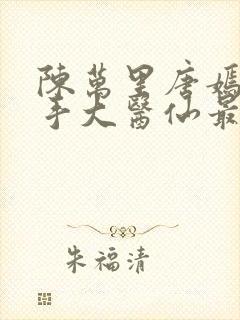 陳萬里唐嫣
手大醫仙最
朱福清